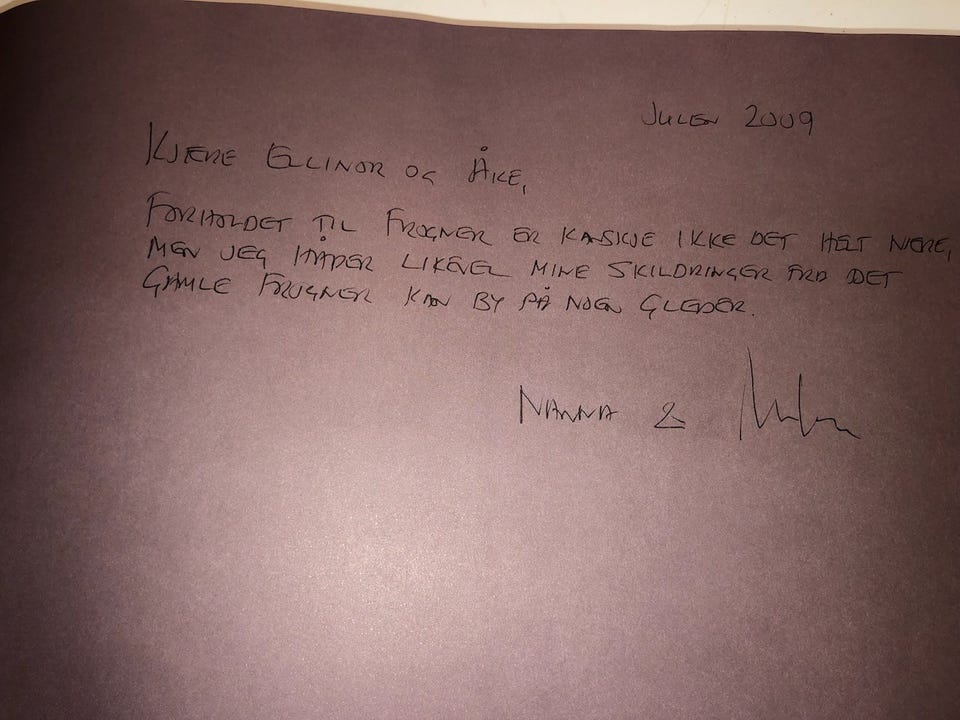 Julen 2009
Kjære Ellinor og Åke,
Forholdet til Frogner er kanskje ikke det helt nære,
men jeg håper likevel mine skildringer fra det
gamle Frogner kan by på noen gleder.
Nanna &